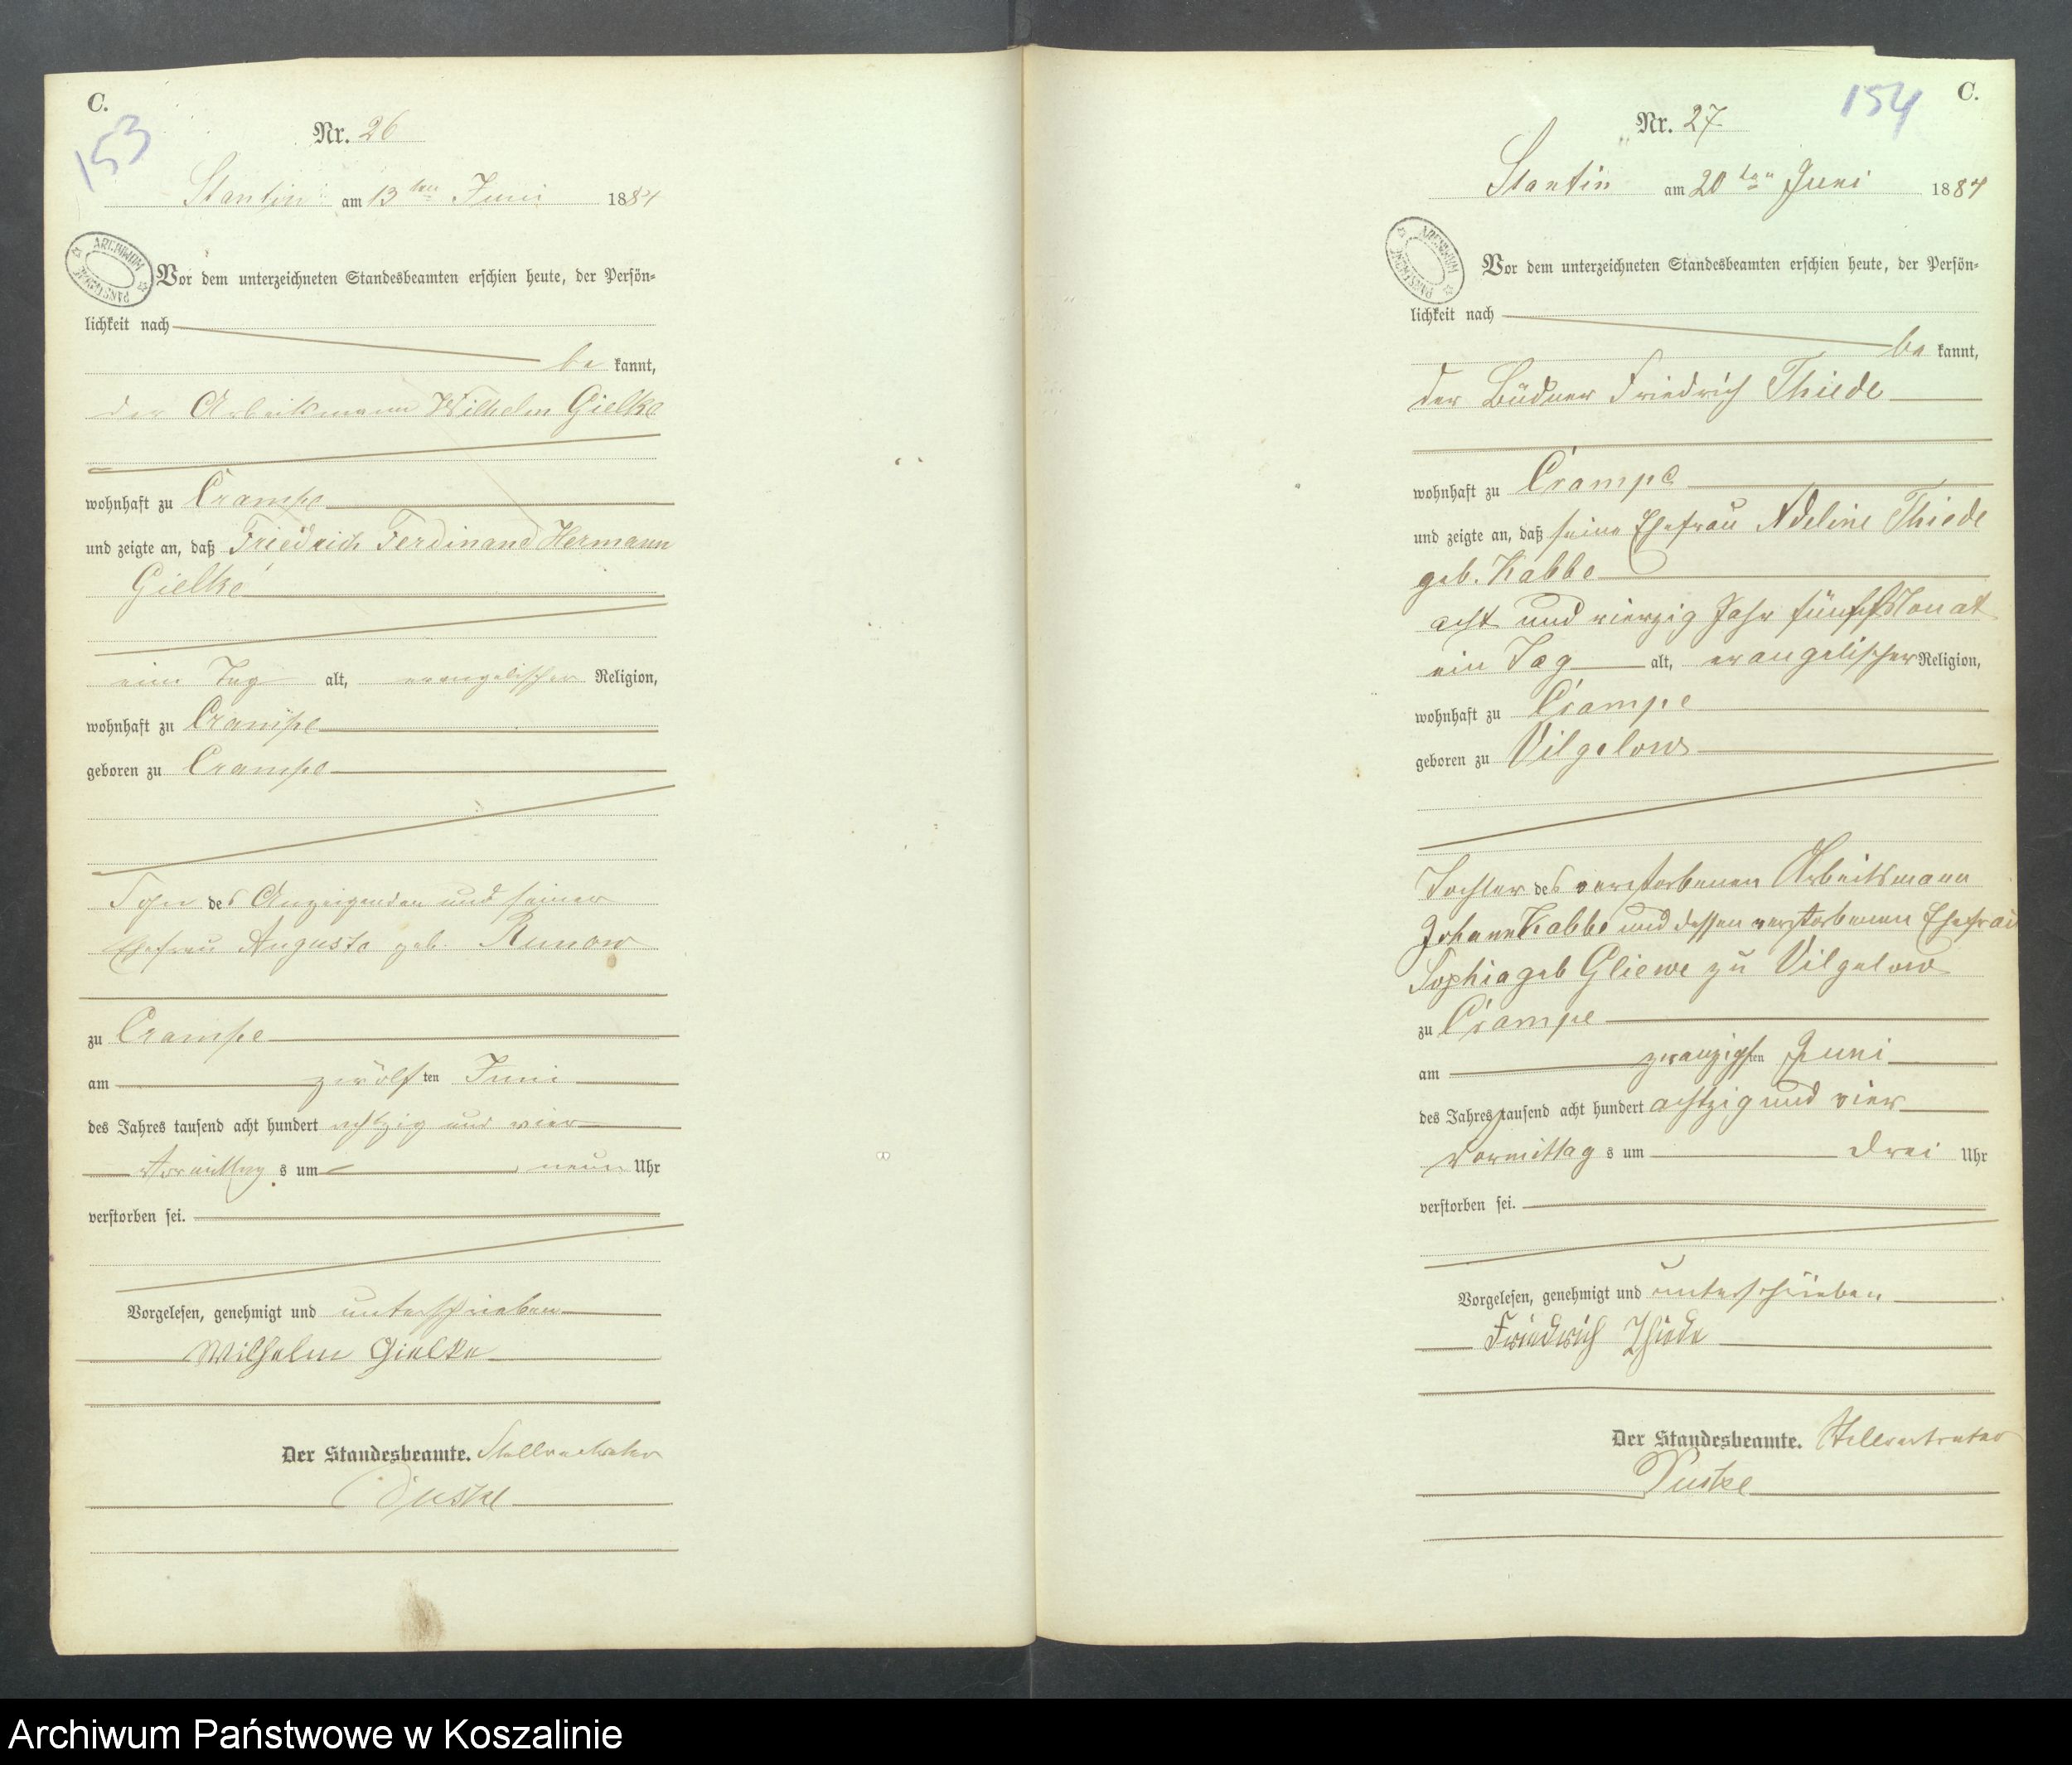 C.
153
Nr. 26
Stantin am 13ten Juni 1884
ARCHIWUM PAŃSTWOWE
Vor dem unterzeichneten Standesbeamten erschien heute, der Persön-
lichkeit nach
be kannt,
der Arbeitsmann Wilhelm Gielke
wohnhaft zu Crampe
und zeigte an, daß Friedrich Ferdinand Hermann
Gielke
einen Tag alt, evangelischer Religion,
wohnhaft zu Crampe
geboren zu Crampe
Sohn des Anzeigenden und seiner
Ehefrau Auguste geb. Rumow
zu Crampe
am zwölften Juni
des Jahres tausend acht hundert achtzig und vier
Vormittags um neun Uhr
verstorben sei.
Vorgelesen, genehmigt und unterschrieben
Wilhelm Gielke
Der Standesbeamte. Stellvertreter
C.
154
Nr. 27
Stantin am 20ten Juni 1884
ARCHIWUM PAŃSTWOWE
Vor dem unterzeichneten Standesbeamten erschien heute, der Persön-
lichkeit nach
be kannt,
der Büdner Friedrich Thiede
wohnhaft zu Crampe
und zeigte an, daß seine Ehefrau Adeline Thiede
geb. Kabbe
acht und vierzig Jahr fünf Monat
ein Tag alt, evangelischer Religion,
wohnhaft zu Crampe
geboren zu Vilgelow
Tochter des verstorbenen Arbeitsmann
Johann Kabbe und dessen verstorbenen Ehefrau
Sophia geb Gliewe zu Vilgelow
zu Crampe
am zwanzigsten Juni
des Jahres tausend acht hundert achtzig und vier
Vormittags um drei Uhr
verstorben sei.
Vorgelesen, genehmigt und unterschrieben
Friedrich Thiede
Der Standesbeamte. Stellvertreter
Archiwum Państwowe w Koszalinie